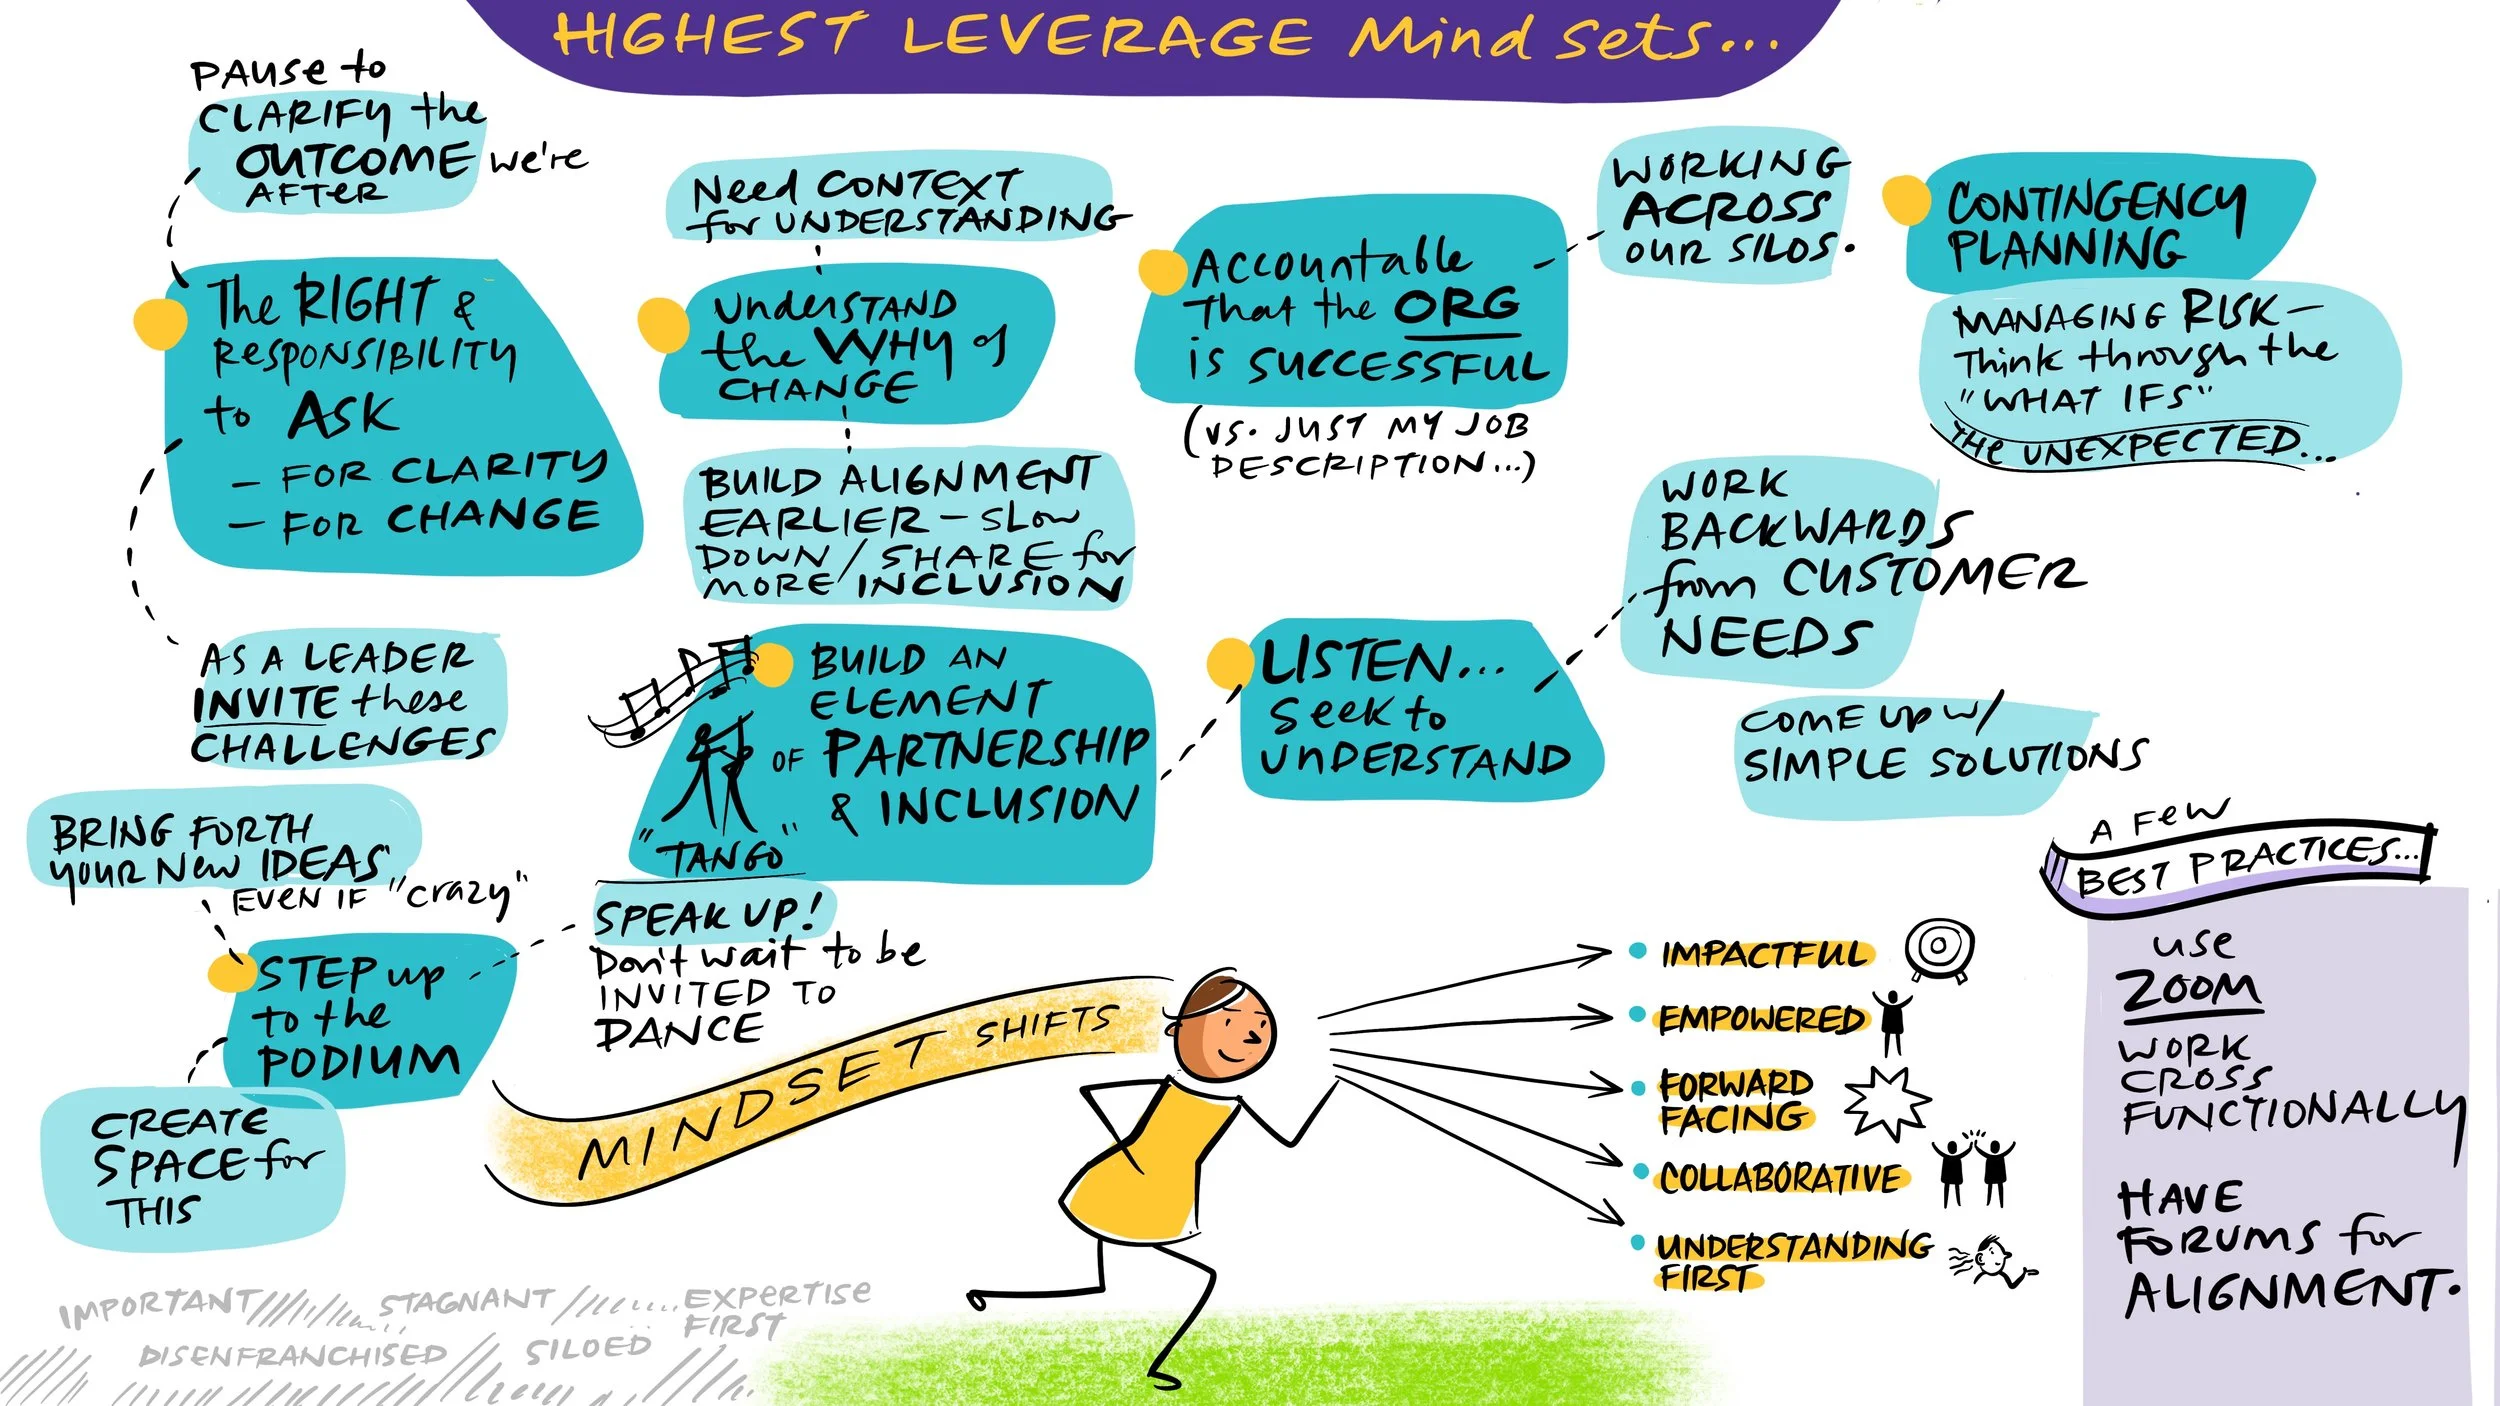 HIGHEST LEVERAGE Mind sets...
PAUSE to
CLARIFY the
OUTCOME we're
AFTER
The RIGHT &
RESPONSIBILITY
to ASK
- FOR CLARITY
- FOR CHANGE
AS A LEADER
INVITE these
CHALLENGES
Need CONTEXT
for UNDERSTANDING
UnderSTAND
the WHY of
CHANGE
BUILD ALIGNMENT
EARLIER - SLOW
DOWN / SHARE for
MORE INCLUSION
Accountable
That the ORG
is SUCCESSFUL
(VS. JUST MY JOB
DESCRIPTION...)
WORKING
ACROSS
OUR SILOS.
CONTINGENCY
PLANNING
MANAGING RISK -
Think through the
"WHAT IFS"
the UNEXPECTED...
BUILD AN
ELEMENT
OF PARTNERSHIP
& INCLUSION
"TANGO"
SPEAK UP!
Don't wait to be
INVITED TO
DANCE
LISTEN...
Seek to
UNDERSTAND
WORK
BACKWARDS
from CUSTOMER
NEEDS
COME UP W/
SIMPLE SOLUTIONS
BRING FORTH
YOUR New IDEAS
EVEN IF "crazy"
STEP up
to the
PODIUM
CREATE
SPACE for
THIS
MINDSET SHIFTS
IMPORTANT
STAGNANT
EXPERTISE
FIRST
DISENFRANCHISED
SILOED
IMPACTFUL
EMPOWERED
FORWARD
FACING
COLLABORATIVE
UNDERSTANDING
FIRST
A FEW
BEST PRACTICES...
USE
ZOOM
WORK
CROSS
FUNCTIONALLY
HAVE
FORUMS for
ALIGNMENT.